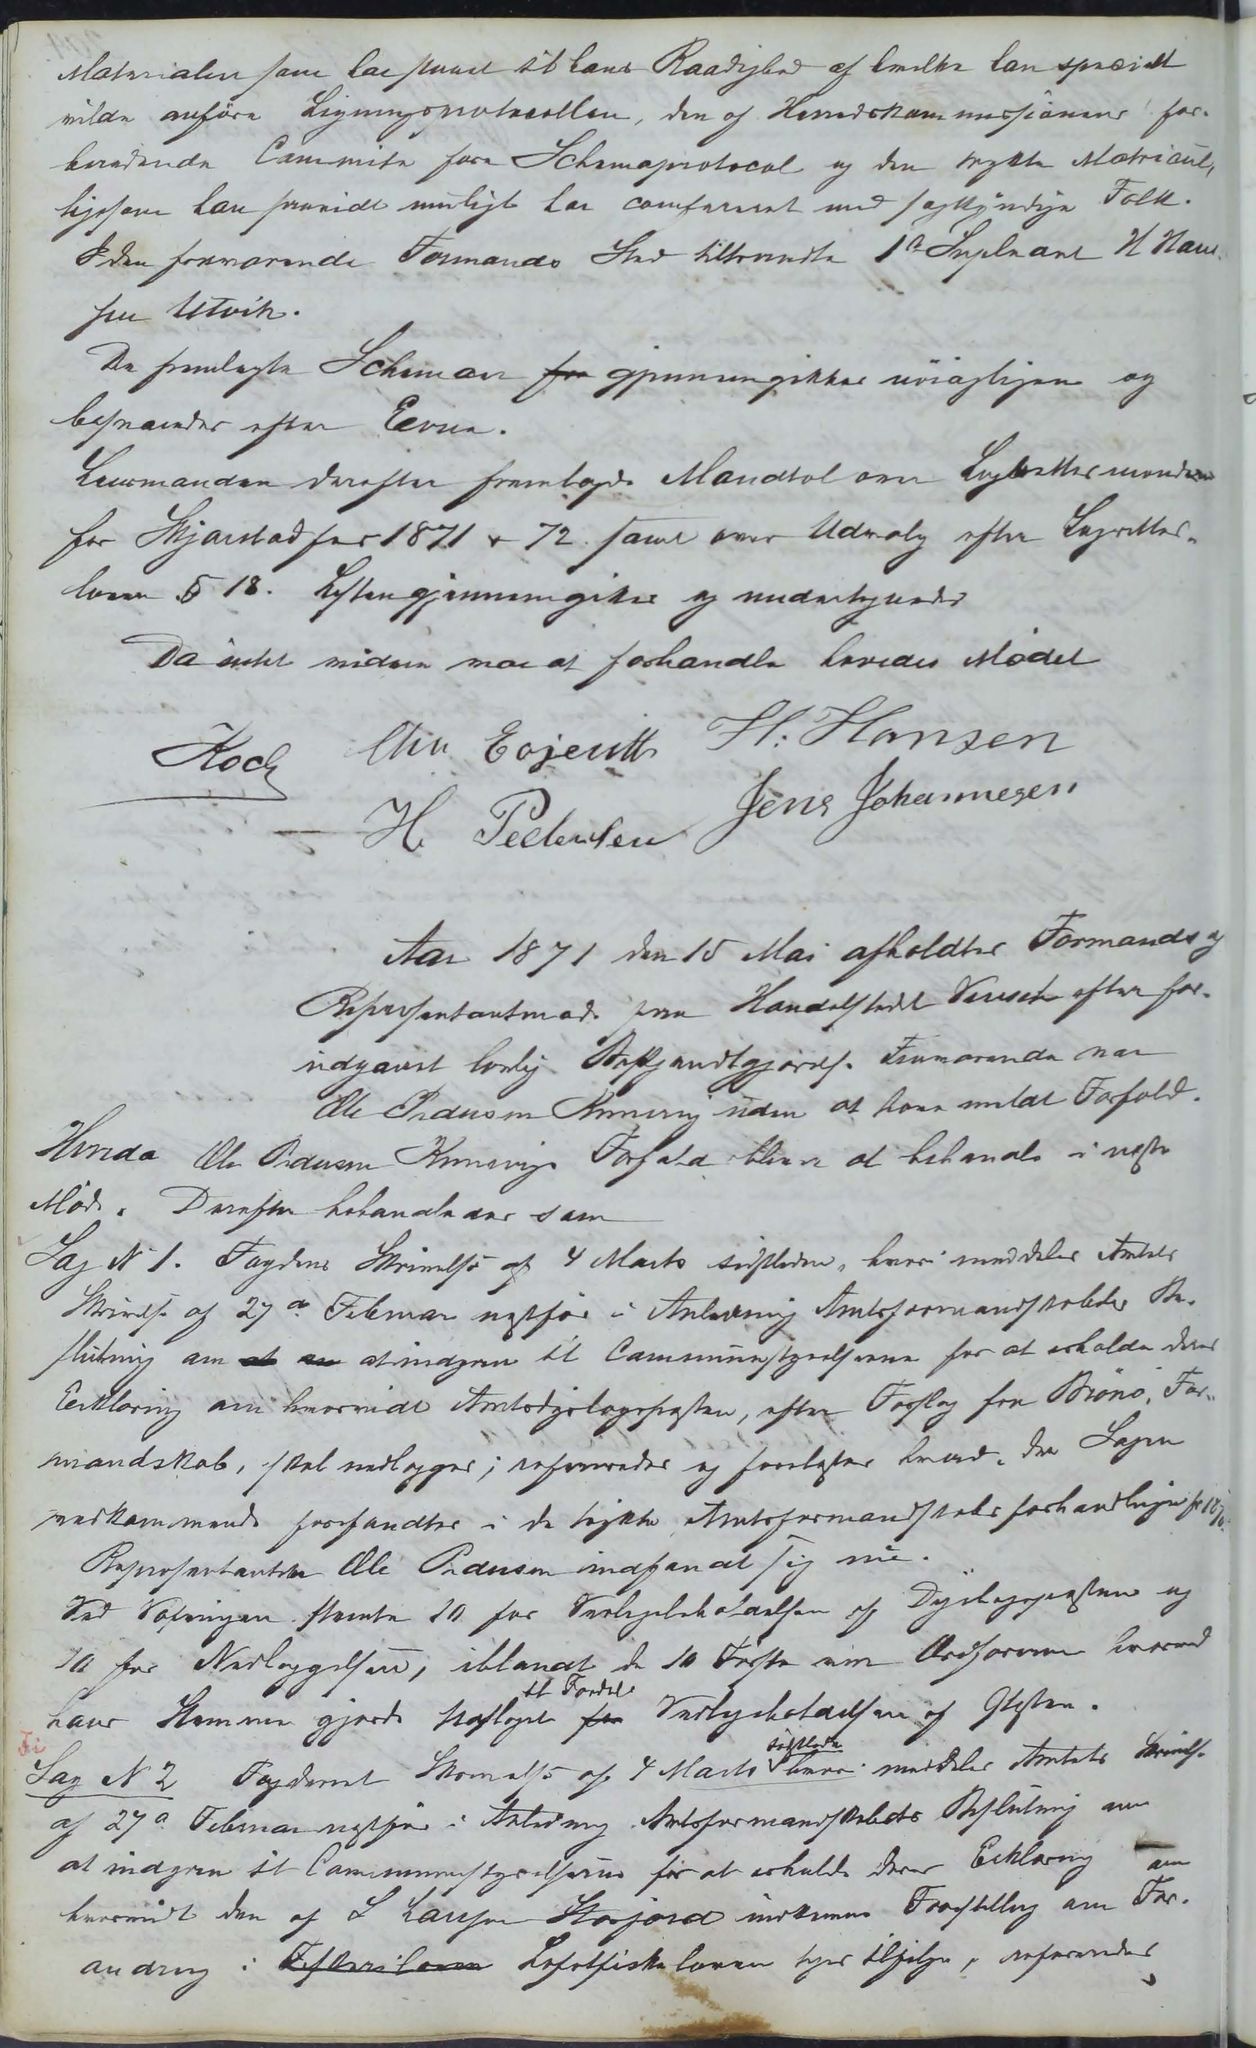 Materialier som har staaet til hans Raadighed af hvilke han specielt
vilde anføre Ligningsprotocollen, den af Herredskommissionens for-
beredende Commite førte Schemaprotocol og den trykte Matricul,
ligesom han saavidt muligt har confereret med sagkyndige Folk.
I den fraværende Formands Sted tiltraadte 1ste Supleant H Han-
sen Utvik.
De fremlagte Schemaer for gjennemgikkes nøiagtigen og
besvaredes efter Evne.
Lensmanden derefter fremlagde Mandtal over Lagrettesmændene
for Skjærstad for 1871 & 72 samt over Udvalg efter Lagrettes-
loven § 18. Listen gjennemgikkes og undertegnedes
Da intet videre var at forhandle hævedes Mødet
Koch Chr. Evjenth H. Hansen
H. Pedersen Jens Johannesen
Aar 1871 den 15 Mai afholdtes Formands og
Repræsentantmøde paa Handelstedet Venset efter for-
udgaaet lovlig Bekjendtgjørelse. Fraværende var
Ole Pedersen uden at have meldt Forfald.
Ole Pedersen Forfald bliver at behandle i næste
Møde. Derefter behandledes som
Sag N 1. Fogdens Skrivelse af 4 Marts sidstleden, hvori meddeles Amtets
Skrivelse af 27de Februar næstfør i Anledning Amtsformandskabets Be-
slutning om at en at indgaa til Communestyrelserne for at erholde deres
Erklæring om hvorvidt Amtsdyrlægeposten, efter Forslag fra Brønø For-
mandskab, skal nedlægges; refereredes og forelæstes hvad der Sagen
vedkommende forefandtes i de trykte Amtsformandskabs forhandlinger for 1870.
Repræsentanten Ole Pedersen indfandt sig nu.
Ved Voteringen stemte 10 for Vedligeholdelsen af Dyrlægeposten og
10 for Nedlæggelsen, iblandt de 10 Første var Ordføreren hvorved
til Fordel
hans Stemme gjorde Udslaget for Vedligeholdelsen af Posten.
Sag N 2 Fogderiets Skrivelse af 4 Marts sidstleden hvori meddeles Amtets Skrivelse
af 27de Februar næstfør i Anledning Amtsformandskabets Beslutning om
at indgaa til Communestyrelserne for at erholde deres Erklæring om
hvorvidt den af L Larsen Storjord indkomne Forestilling om For-
andring i Lofotfiskeloven tages tilfølge, refereredes